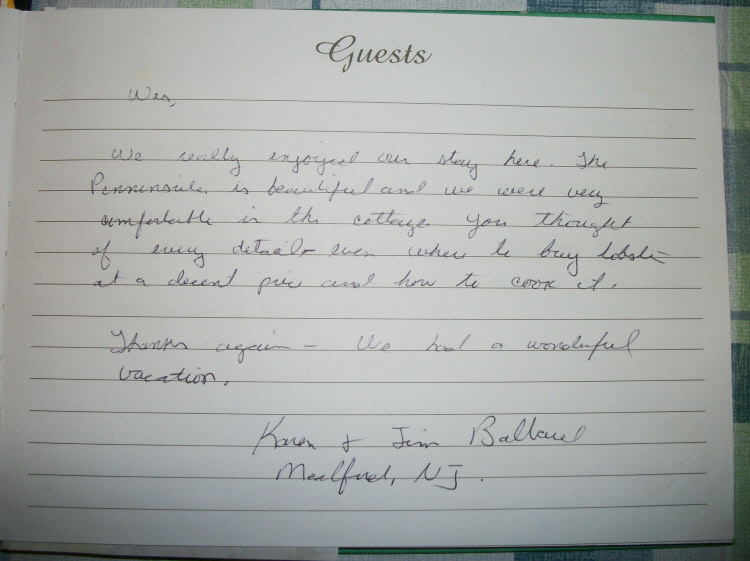 Guests
Wes,
We really enjoyed our stay here. The
Penninsula is beautiful and we were very
comfortable in the cottage. You thought
of every detail - even where to buy lobster
at a decent price and how to cook it.
Thanks again - We had a wonderful
vacation.
Karen & Jim Ballard
Medford, NJ.